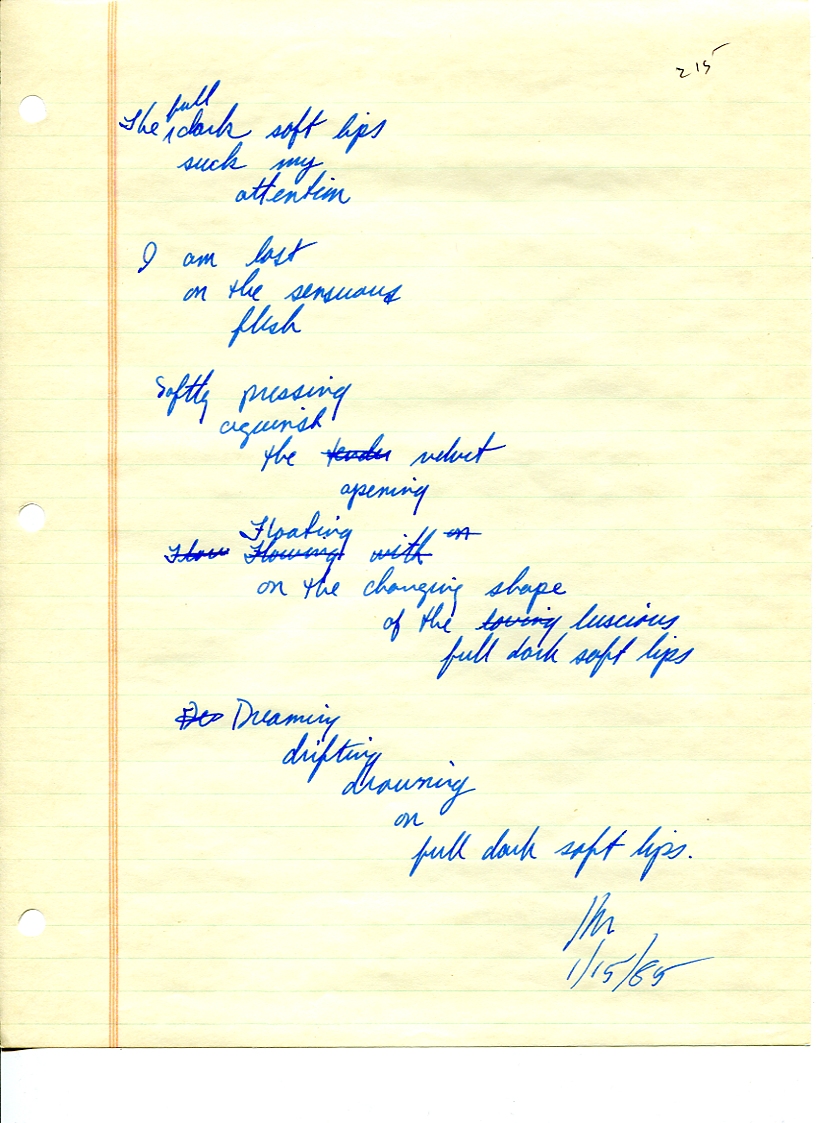 215
full
The dark soft lips
suck my
attention
I am lost
on the sensuous
flesh
Softly pressing
the tender velvet
opening
Floating on
Flow Flowing with
on the changing shape
of the loving luscious
full dark soft lips
Dreaming
drifting
drowning
on
full dark soft lips.
1/15/85